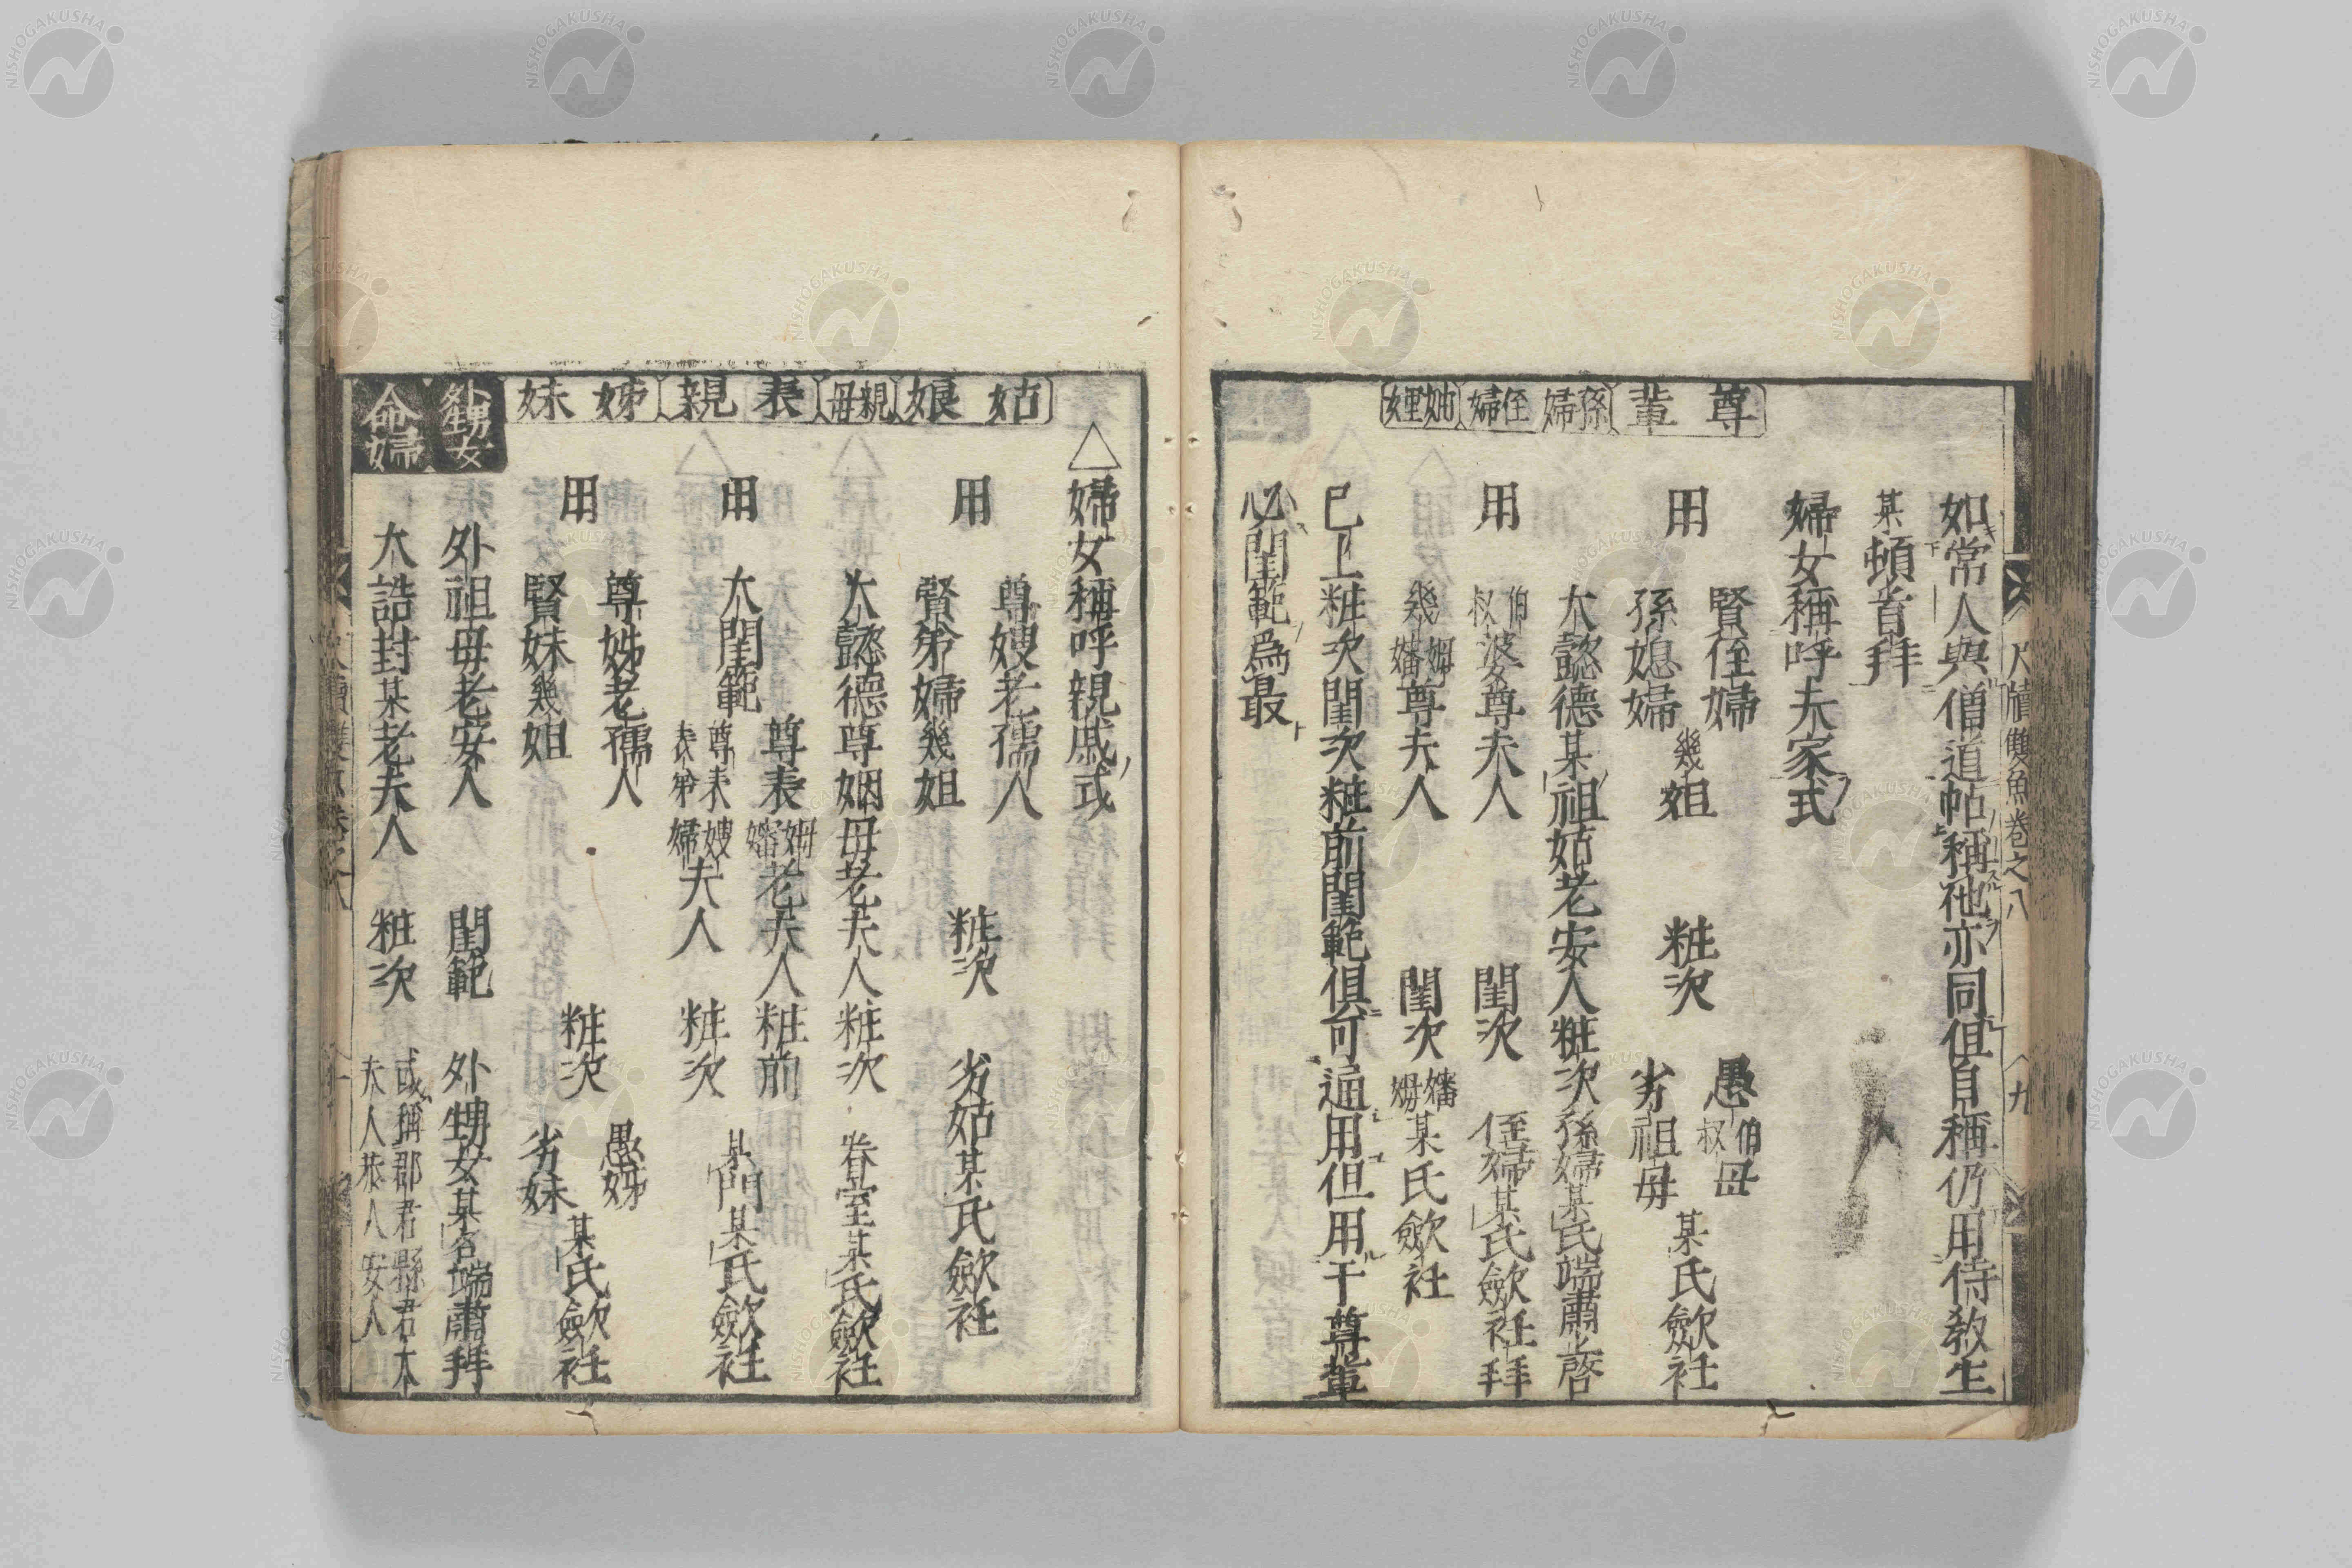 尺牘雙魚卷之八
九
如常人與僧道帖稱祂亦同但自稱仍用侍教生
某頓首拜
婦女稱呼夫家式
尊輩
用
賢侄婦
孫媳婦
幾姐
粧次
愚伯叔母
劣祖母
某氏歛衽
孫婦
大懿德某祖姑老安人粧次孫婦某氏端肅啓
侄婦
用
伯叔婆尊夫人
閨次
侄婦某氏歛衽拜
妯娌
幾姆嬸尊夫人
閨次
嬸姆某氏歛衽
已上粧次閨次粧前閨範俱可通用但用于尊輩
必閨範為最
△婦女稱呼親戚式
姑娘
用
尊嫂老孺人
賢弟婦幾姐
粧次
劣姑某氏歛衽
親母
大懿德尊姻母老夫人粧次
眷室某氏歛衽
表親
用
大閨範
尊表姆嬸老夫人粧前
尊表嫂
表弟婦
夫人
粧次
某門某氏歛衽
姊妹
用
尊姊老孺人
賢妹幾姐
粧次
愚姊
劣妹
某氏歛衽
外甥女
外祖母老安人
閨範
外甥女某名端肅拜
命婦
大誥封某老夫人
粧次
或稱郡君縣君太
夫人恭人安人